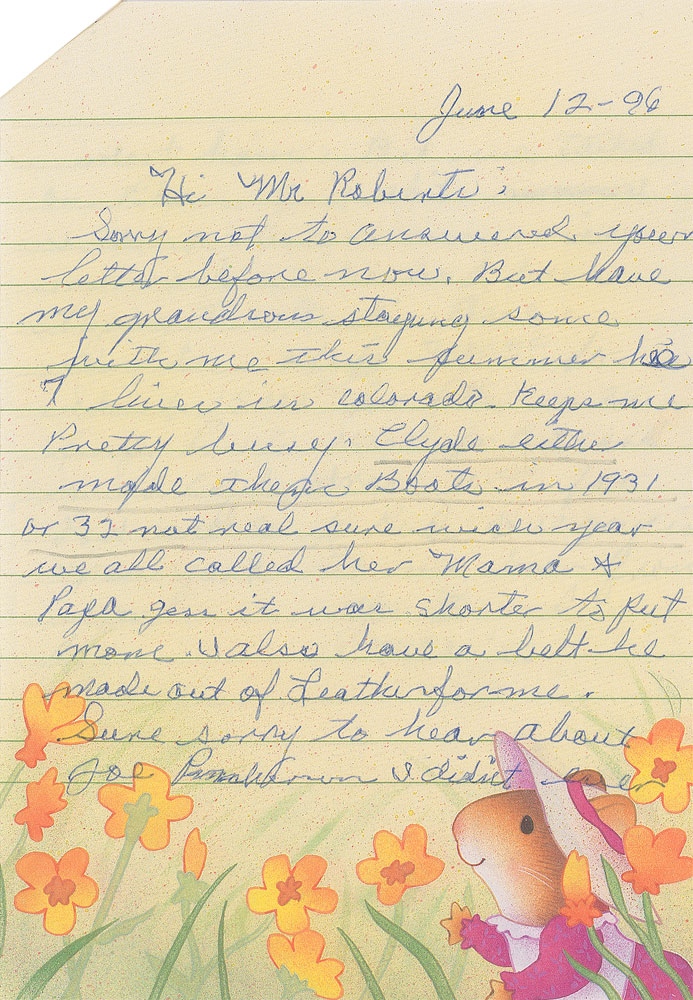 June 12-96
Hi Mr Roberts,
Sorry not to answered your
letter before now. But have
my grandsons staying some
with me this summer he
lives in Colorado. Keeps me
Pretty busy. Clyde either
made these Boots in 1931
or 32 not real sure wich year
we all called her Mama &
Papa gess it was shorter to put
mom. I also have a belt he
made out of Leather for me.
Sure sorry to hear about
Joe I didn't even